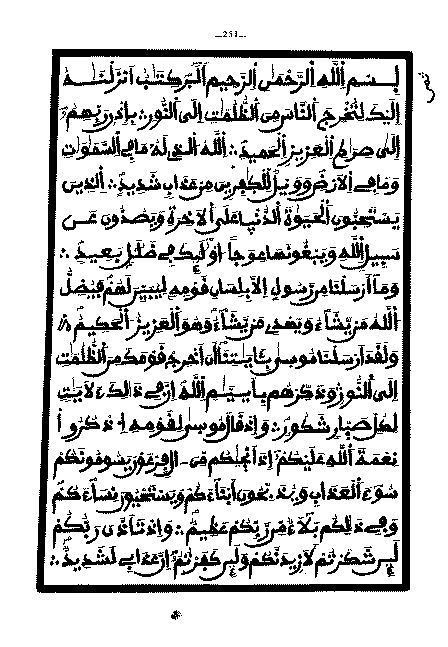 ـ251ـ
ثمن
بسم الله الرحمن الرحيم ألر كتاب أنزلناه
إليك لتخرج الناس من الظلمات إلى النور بإذن ربهم
إلى صراط العزيز الحميد ∴ الله الذي له ما في السماوات
وما في الأرض وويل للكافرين من عذاب شديد ∴ الذين
يستحبون الحياة الدنيا على الآخرة ويصدون عن
سبيل الله ويبغونها عوجا أولئك في ضلال بعيد ∴
وما أرسلنا من رسول إلا بلسان قومه ليبين لهم فيضل
الله من يشاء ويهدي من يشاء وهو العزيز الحكيم ∴
ولقد أرسلنا موسى بآياتنا أن أخرج قومك من الظلمات
إلى النور وذكرهم بأييام الله إن في ذلك لآيات
لكل صبار شكور ∴ وإذ قال موسى لقومه اذكروا
نعمة الله عليكم إذ أنجاكم من ءال فرعون يسومونكم
سوء العذاب ويذبحون أبناءكم ويستحيون نساءكم
وفي ذلكم بلاء من ربكم عظيم ∴ وإذ تأذن ربكم
لئن شكرتم لأزيدنكم ولئن كفرتم إن عذابي لشديد ∴